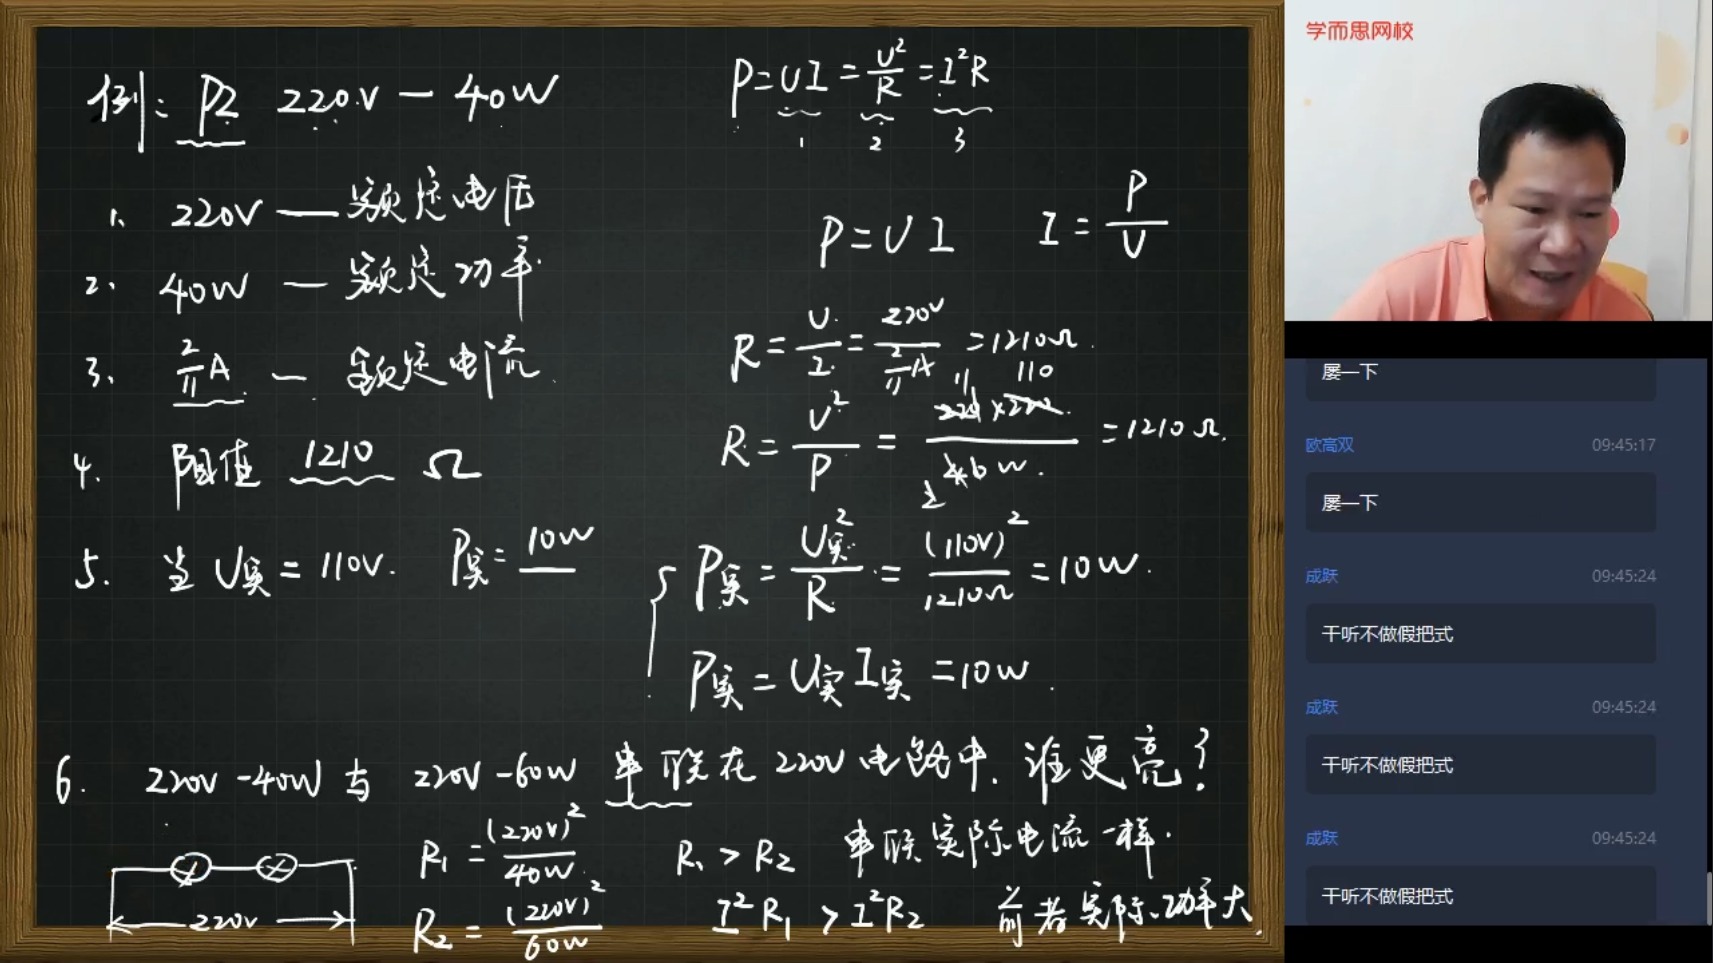 例: PZ 220V — 40W
1. 220V — 额定电压
2. 40W — 额定功率
3. 2/11 A — 额定电流
4. 阻值 1210 Ω
5. 当 U实 = 110V. P实 = 10W
P = UI = U²/R = I²R
1 2 3
P = U I I = P/U
R = U/I = 220V / (2/11 A) = 1210Ω.
11 110
R = U²/P = 220×220 / 40W. = 1210Ω.
2
P实 = U实²/R = (110V)²/1210Ω = 10W.
P实 = U实 I实 = 10W.
6. 220V-40W 与 220V-60W 串联在 220V 电路中. 谁更亮?
220V
R₁ = (220V)²/40W
R₂ = (220V)²/60W
R₁ > R₂ 串联实际电流一样.
I²R₁ > I²R₂ 前者实际功率大.
学而思网校
屡一下
欧高双 09:45:17
屡一下
成跃 09:45:24
干听不做假把式
成跃 09:45:24
干听不做假把式
成跃 09:45:24
干听不做假把式